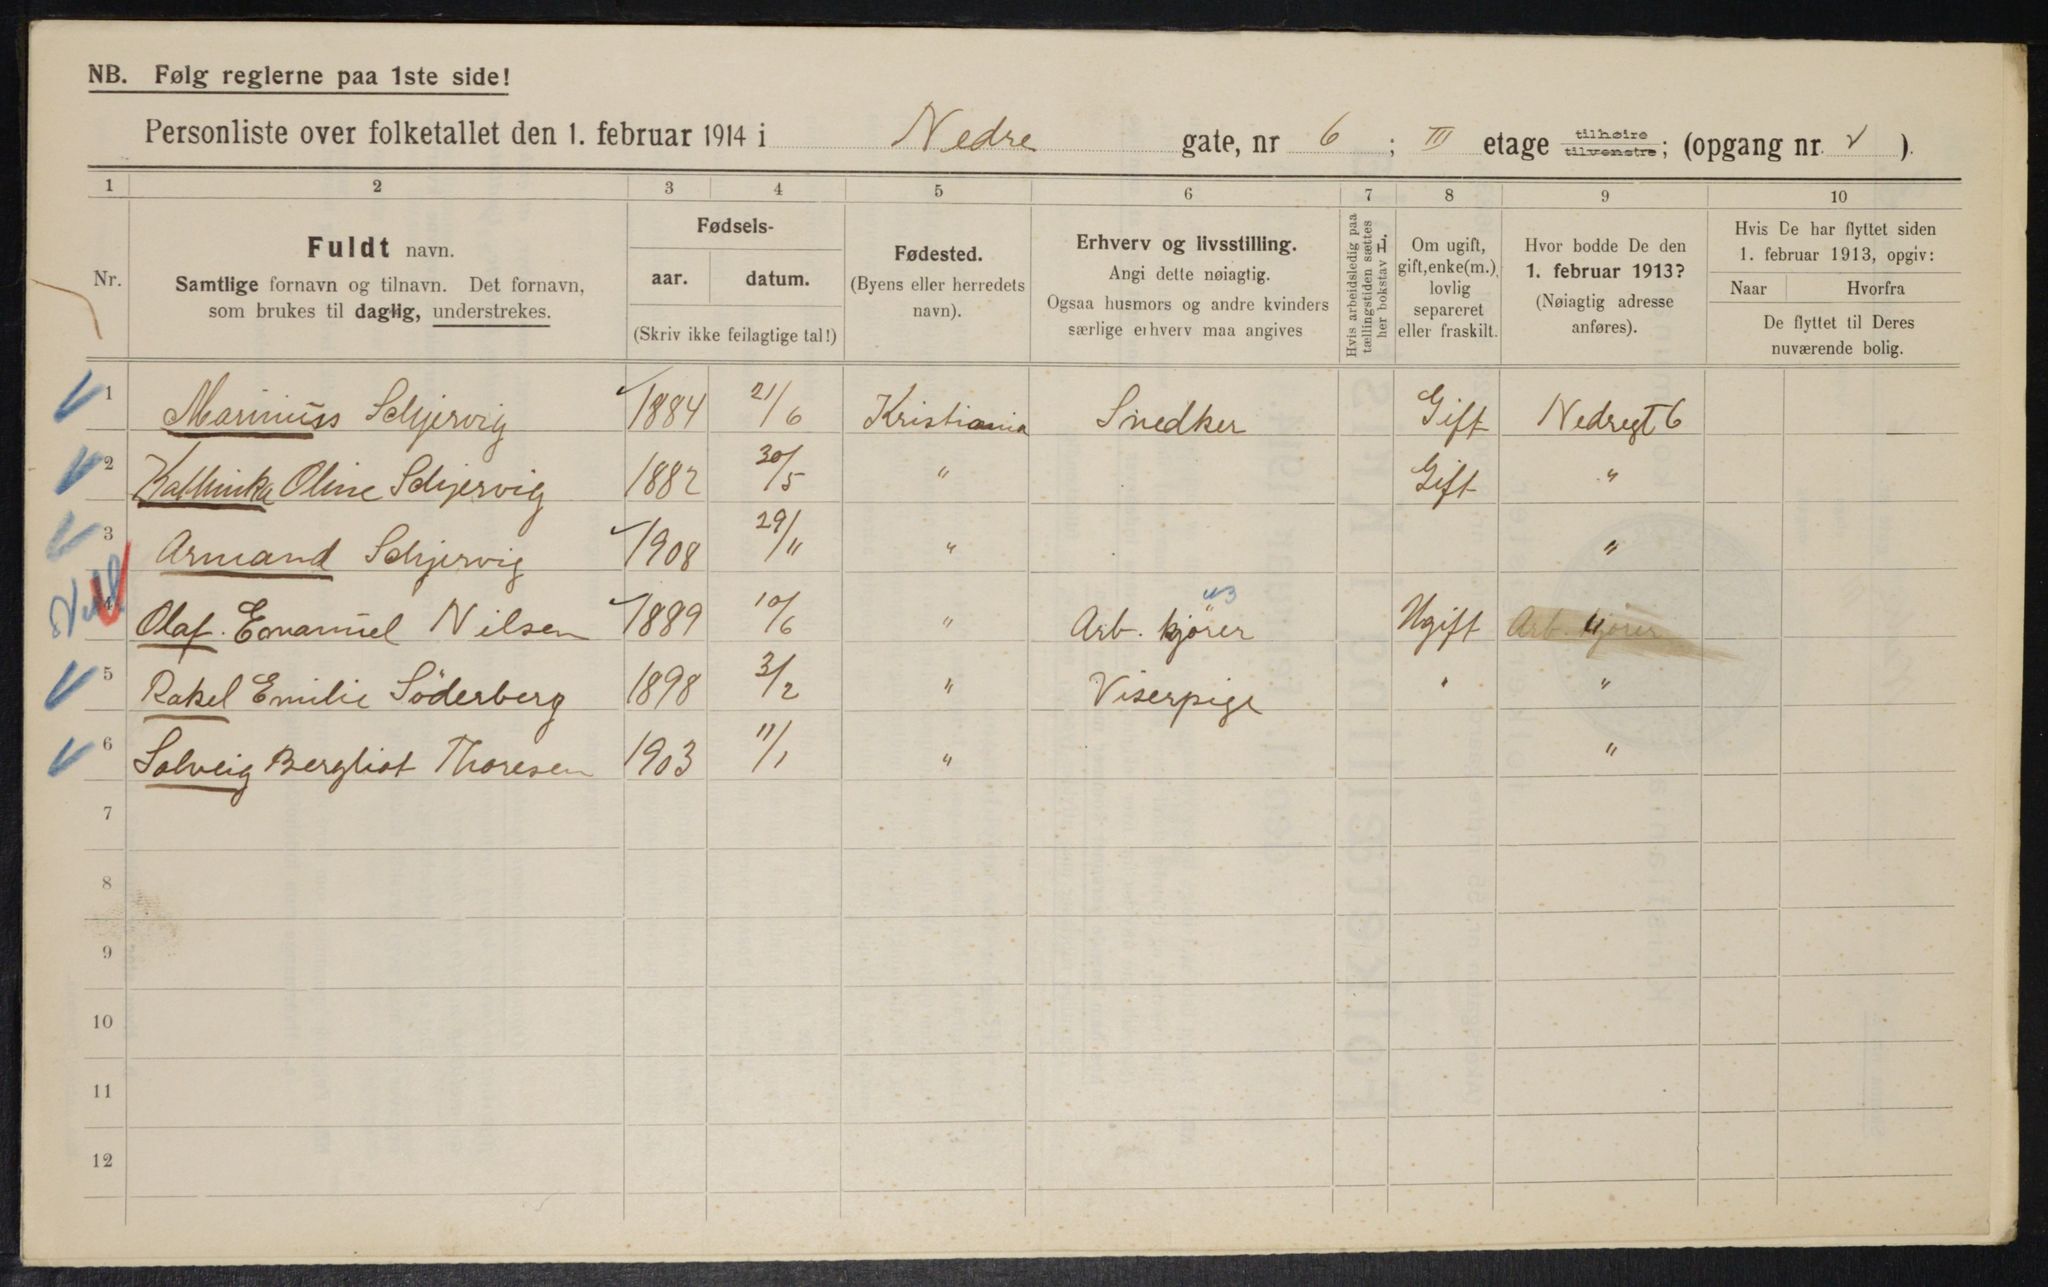 NB. Følg reglerne paa 1ste side!
Personliste over folketallet den 1. februar 1914 i Nedre gate, nr 6 ; III etage tilhøire tilvenstre; (opgang nr. 2 ).
1 2 3 4 5 6 7 8 9 10
Nr.
Fuldt navn.
Samtlige fornavn og tilnavn. Det fornavn,
som brukes til daglig, understrekes.
Fødsels-
aar. datum.
(Skriv ikke feilagtige tal!)
Fødested.
(Byens eller herredets
navn).
Erhverv og livsstilling.
Angi dette nøiagtig.
Ogsaa husmors og andre kvinders
særlige erhverv maa angives
Hvis arbeidsledig paa
tællingstiden sættes
her bokstav L.
Om ugift,
gift, enke(m.),
lovlig
separeret
eller fraskilt.
Hvor bodde De den
1. februar 1913?
(Nøiagtig adresse
anføres).
Hvis De har flyttet siden
1. februar 1913, opgiv:
Naar Hvorfra
De flyttet til Deres
nuværende bolig.
1 Marinuss Schjervig 1884 21/6 Kristiania Snedker Gift Nedregt 6
2 Kathinka Oline Schjervig 1882 30/5 " Gift "
3 Armand Schjervig 1908 29/11 " "
4 Olaf Emanuel Nilsen 1889 10/6 " Arb. kjörer Ugift Arb. kjörer "
5 Rakel Emilie Söderberg 1898 3/2 " Viserpige " "
6 Solveig Bergliot Thoresen 1903 11/1 " "
7
8
9
10
11
12